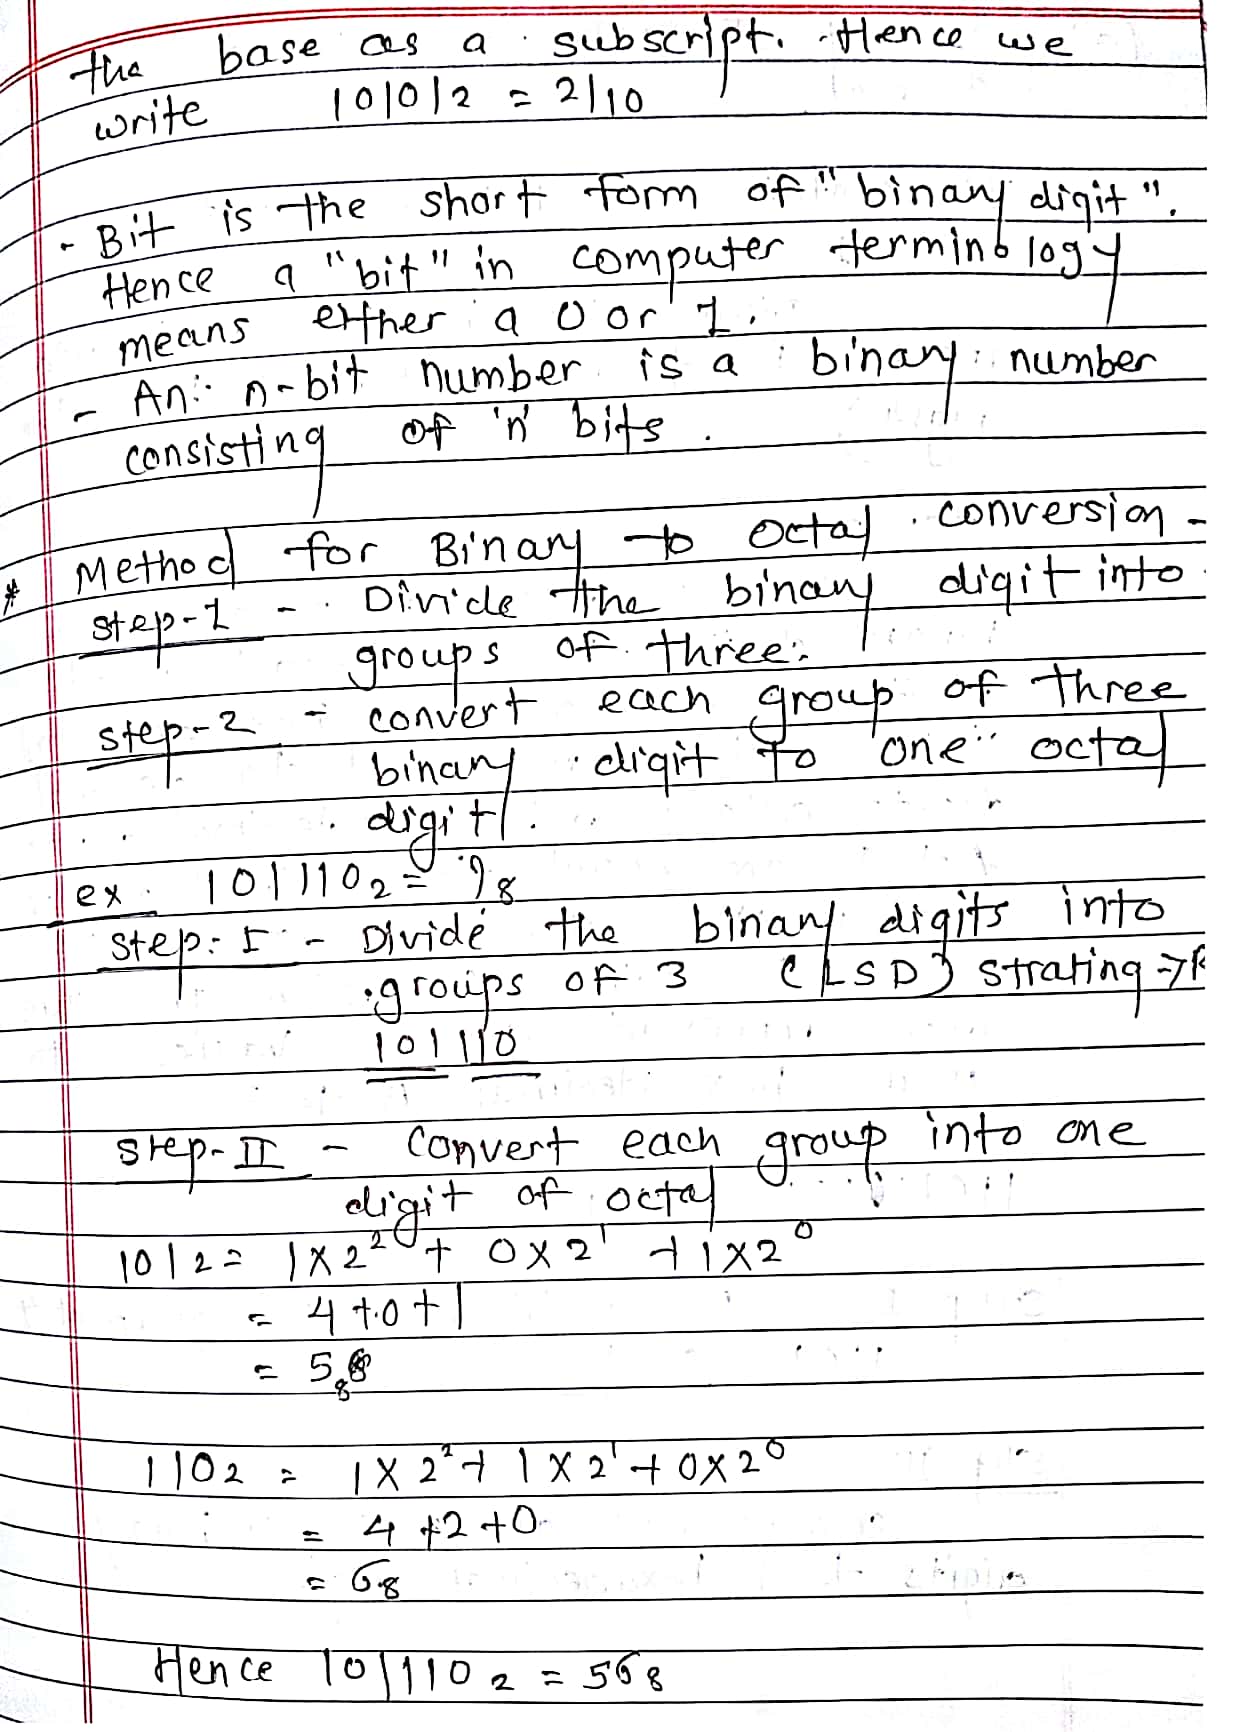 the base as a subscript. Hence we
write 10101₂ = 21₁₀
- Bit is the short form of "binary digit".
Hence a "bit" in computer terminology
means either a 0 or 1.
- An n-bit number is a binary number
consisting of 'n' bits.
* Method for Binary to Octal conversion -
step-1 - Divide the binary digit into
groups of three.
step-2 - convert each group of three
binary digit to one octal
digit.
ex. 101110₂ = ?₈
step-I - Divide the binary digits into
groups of 3 (LSD) strating → R
101 110
step-II - Convert each group into one
digit of octal
101₂ = 1×2² + 0×2¹ + 1×2⁰
= 4+0+1
= 5₈
110₂ = 1×2² + 1×2¹ + 0×2⁰
= 4+2+0
= 6₈
Hence 101110₂ = 56₈